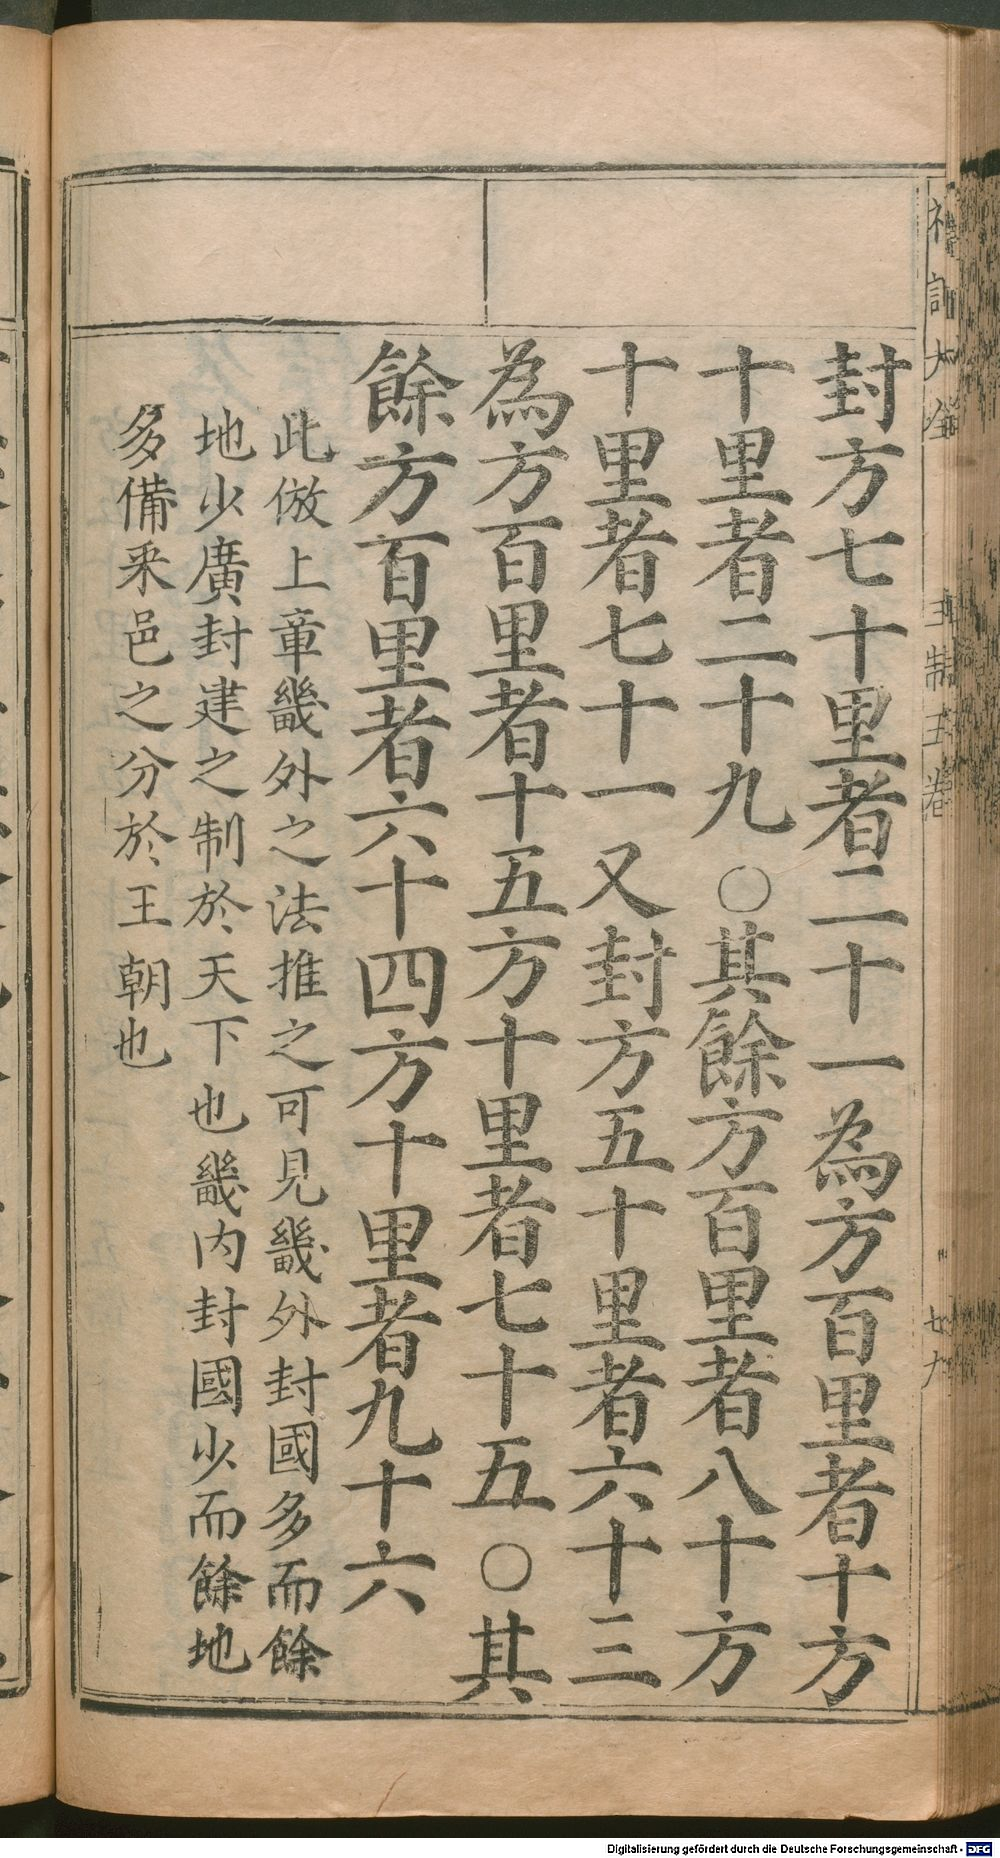 封方七十里者二十一為方百里者十方
十里者二十九○其餘方百里者八十方
十里者七十一又封方五十里者六十三
為方百里者十五方十里者七十五○其
餘方百里者六十四方十里者九十六
此倣上章畿外之法推之可見畿外封國多而餘
地少廣封建之制於天下也畿内封國少而餘地
多備采邑之分於王朝也
王制王卷
廿九
Digitalisierung gefördert durch die Deutsche Forschungsgemeinschaft - DFG